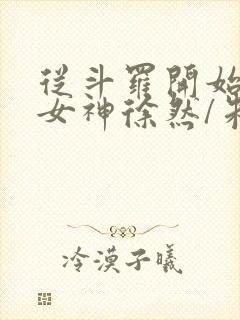 從斗羅開始
女神徐然/
冷漠子曦